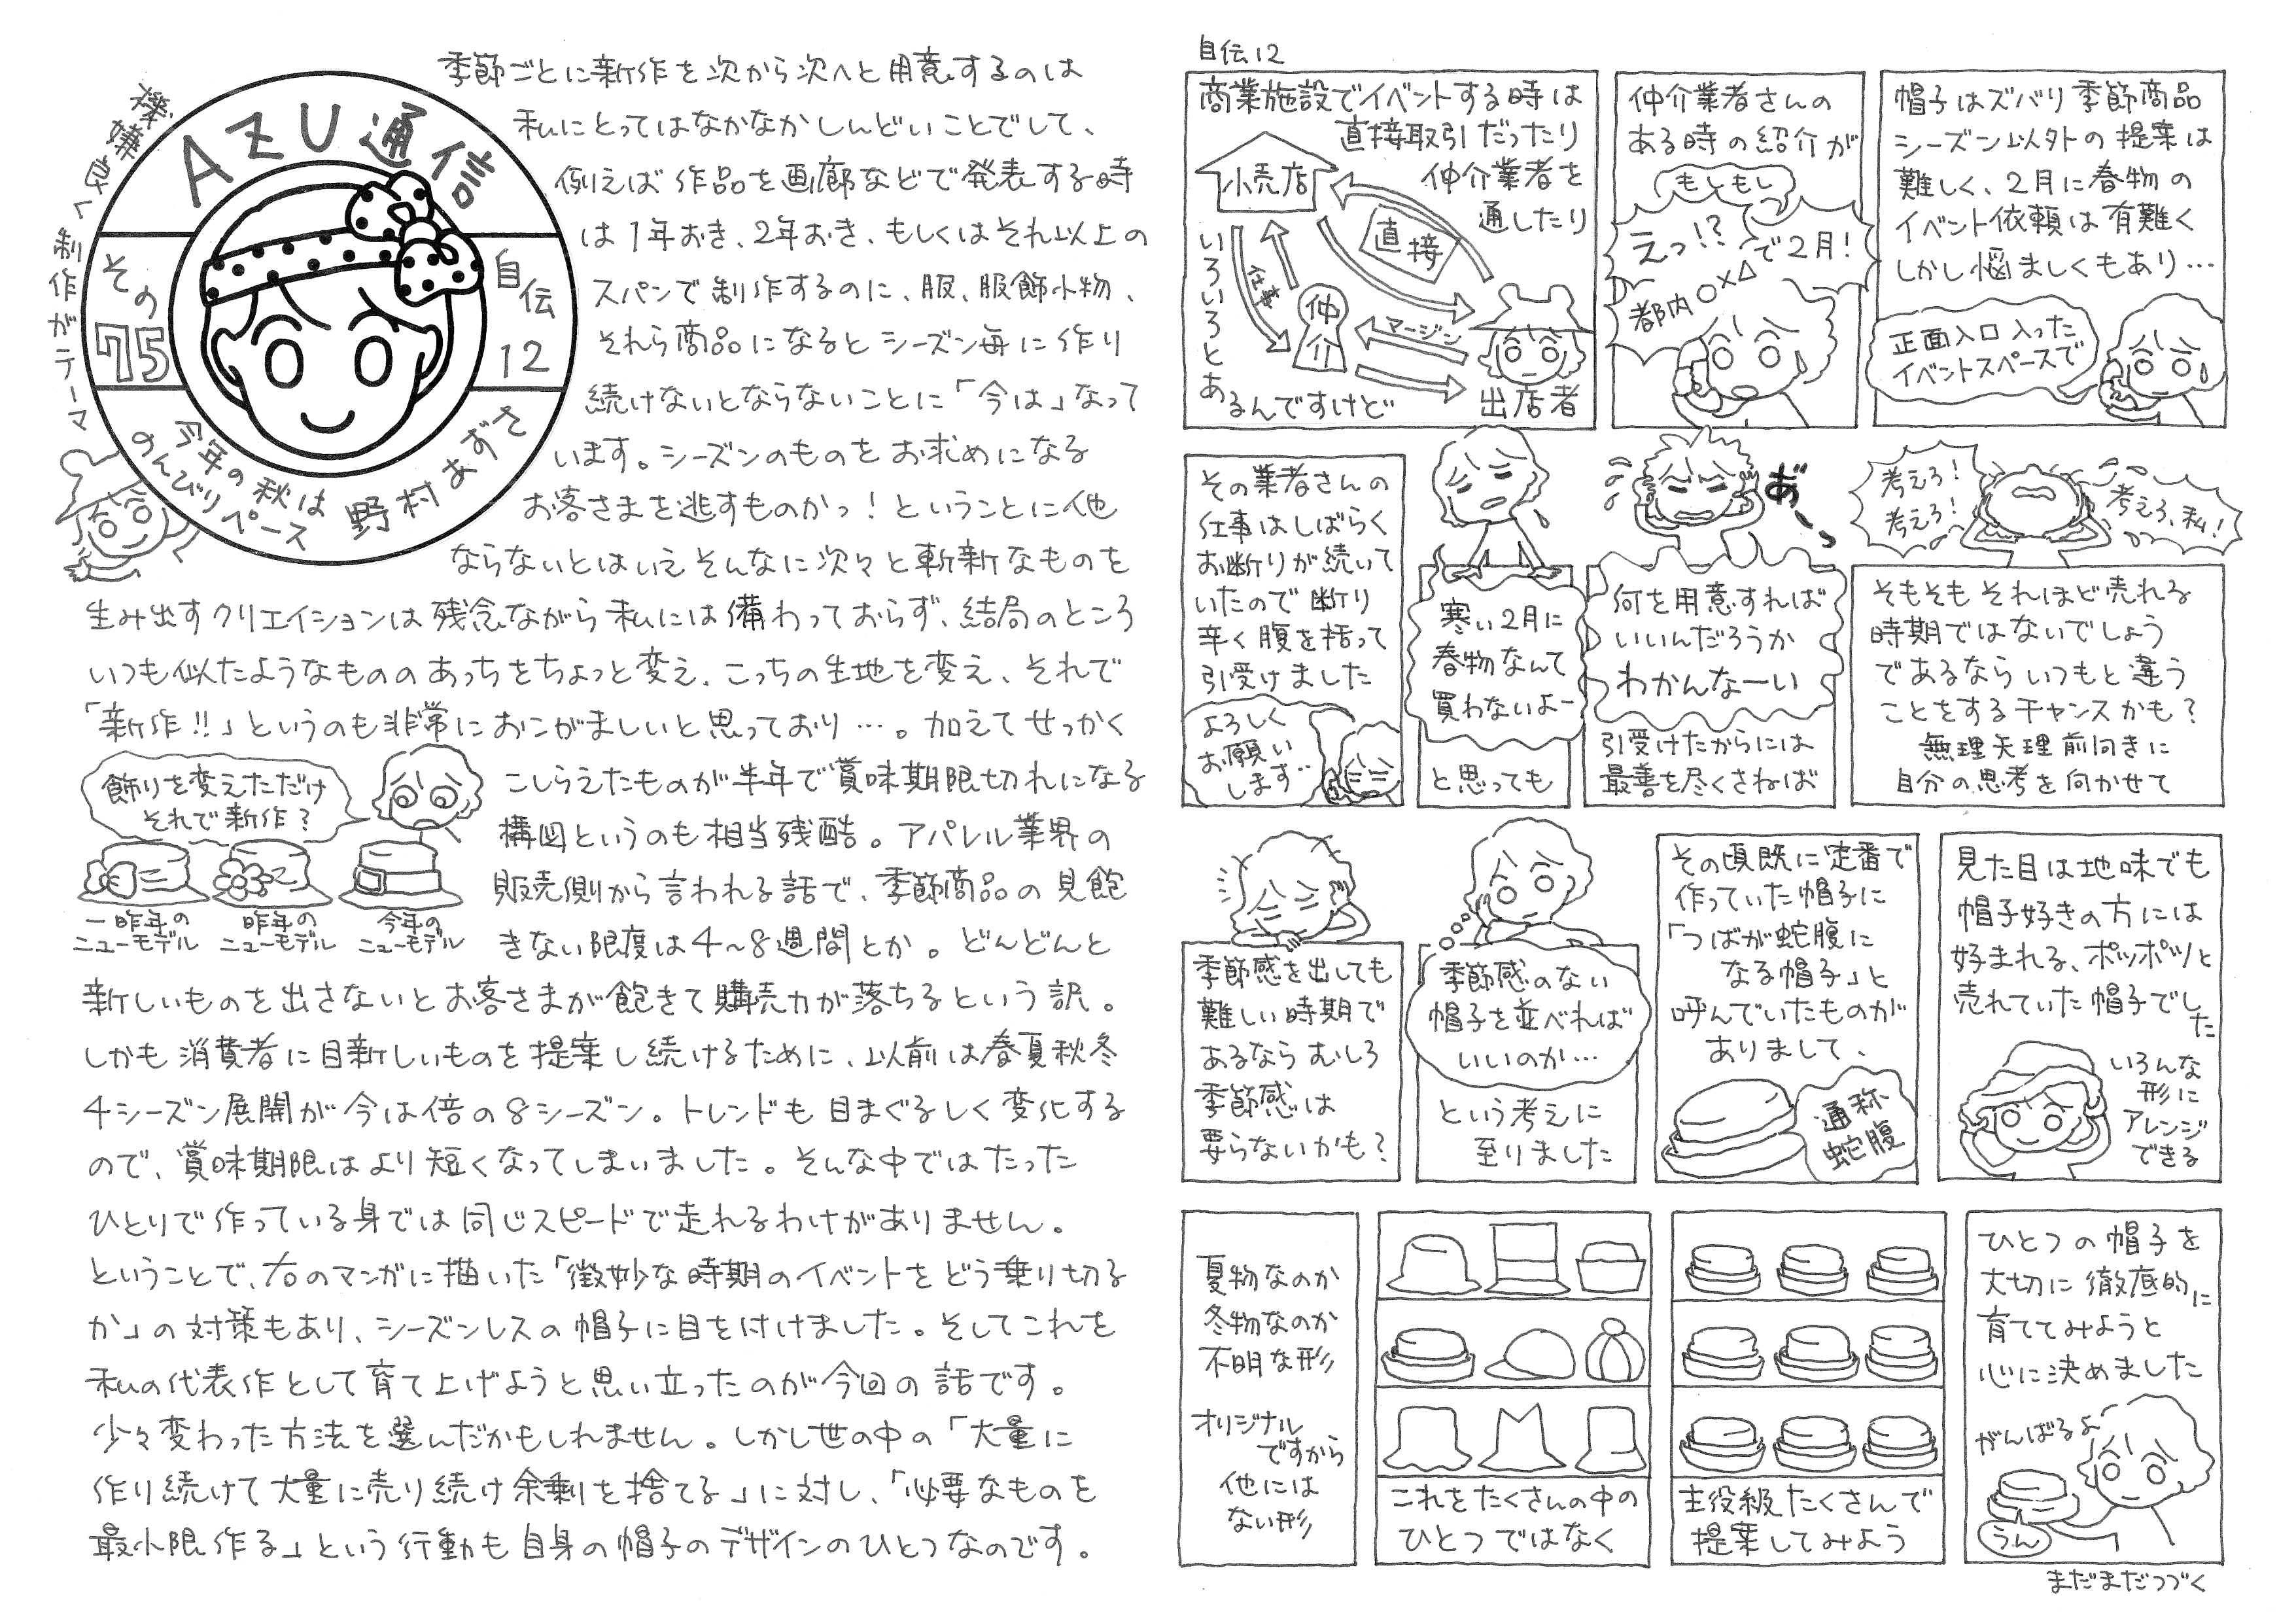 機嫌良く制作がテーマ
AZU通信
その
75
自伝
12
今年の秋は
のんびりペース
野村あずさ
季節ごとに新作を次から次へと用意するのは
私にとってはなかなかしんどいことでして、
例えば作品を画廊などで発表する時
は1年おき、2年おき、もしくはそれ以上の
スパンで制作するのに、服、服飾小物、
それら商品になるとシーズン毎に作り
続けないとならないことに「今は」なって
います。シーズンのものをお求めになる
お客さまを逃すものかっ!ということに他
ならないとはいえそんなに次々と斬新なものを
生み出すクリエイションは残念ながら私には備わっておらず、結局のところ
いつも似たようなもののあっちをちょっと変え、こっちの生地を変え、それで
「新作!!」というのも非常におこがましいと思っており…。加えてせっかく
こしらえたものが半年で賞味期限切れになる
構図というのも相当残酷。アパレル業界の
販売側から言われる話で、季節商品の見飽
きない限度は4〜8週間とか。どんどんと
新しいものを出さないとお客さまが飽きて購売力が落ちるという訳。
しかも消費者に目新しいものを提案し続けるために、以前は春夏秋冬
4シーズン展開が今は倍の8シーズン。トレンドも目まぐるしく変化する
ので、賞味期限はより短くなってしまいました。そんな中ではたった
ひとりで作っている身では同じスピードで走れるわけがありません。
ということで、右のマンガに描いた「微妙な時期のイベントをどう乗り切る
か」の対策もあり、シーズンレスの帽子に目を付けました。そしてこれを
私の代表作として育て上げようと思い立ったのが今回の話です。
少々変わった方法を選んだかもしれません。しかし世の中の「大量に
作り続けて大量に売り続け余剰を捨てる」に対し、「必要なものを
最小限作る」という行動も自身の帽子のデザインのひとつなのです。
飾りを変えただけ
それで新作?
一昨年の
ニューモデル
昨年の
ニューモデル
今年の
ニューモデル
自伝12
商業施設でイベントする時は
直接取引だったり
仲介業者を
通したり
小売店
直接
仕事
仲介
マージン
出店者
いろいろとあ
るんですけど
仲介業者さんの
ある時の紹介が
もしもし
えっ!?
で2月!
都内○×△
帽子はズバリ季節商品
シーズン以外の提案は
難しく、2月に春物の
イベント依頼は有難く
しかし悩ましくもあり…
正面入口入った
イベントスペースで
その業者さんの
仕事はしばらく
お断りが続いて
いたので断り
辛く腹を括って
引受けました
よろしく
お願い
します…
寒い2月に
春物なんて
買わないよー
と思っても
あーっ
何を用意すれば
いいんだろうか
わかんなーい
引受けたからには
最善を尽くさねば
考えろ!
考えろ!
考えろ、私!
そもそもそれほど売れる
時期ではないでしょう
であるならいつもと違う
ことをするチャンスかも?
無理矢理前向きに
自分の思考を向かせて
季節感を出しても
難しい時期で
あるならむしろ
季節感は
要らないかも?
季節感のない
帽子を並べれば
いいのか…
という考えに
至りました
その頃既に定番で
作っていた帽子に
「つばが蛇腹に
なる帽子」と
呼んでいたものが
ありまして、
通称
蛇腹
見た目は地味でも
帽子好きの方には
好まれる、ポツポツと
売れていた帽子でした
いろんな
形に
アレンジ
できる
夏物なのか
冬物なのか
不明な形
オリジナル
ですから
他には
ない形
これをたくさんの中の
ひとつではなく
主役級たくさんで
提案してみよう
ひとつの帽子を
大切に徹底的に
育ててみようと
心に決めました
がんばるよ
うん
まだまだつづく